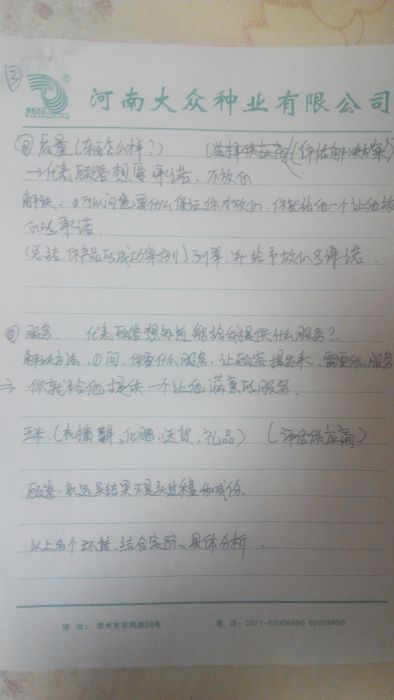 3
河南大众种业有限公司
质量(东西怎么样?) (选择供应商/评估解决方案)
→代表顾客想要承诺,不放心
解决:①可以问他要什么保证你才放心,你就给他一个让他放
心的承诺
(总结你产品的成功案例)列举,并给予放心的承诺.
服务. 代表顾客想知道能给我提供什么服务?
解决方法,①问,你要什么服务,让顾客提出来,需要什么服务
→ 你就给他提供一个让他满意的服务.
玉米.(机播耕、化肥、送货、礼品) (评估供应商)
顾客.永远是结果不是
以上各个环节,结合实际、具体分析.
地 址: 郑州市东风路28号 电 话: 0371-65006680 65006690